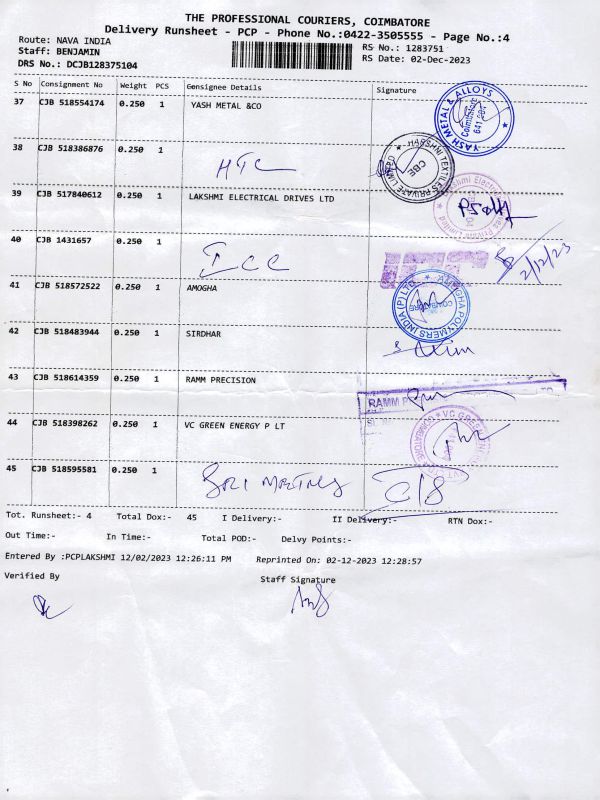 THE PROFESSIONAL COURIERS, COIMBATORE
Delivery Runsheet - PCP - Phone No.:0422-3505555 - Page No.:4
Route: NAVA INDIA
RS No.: 1283751
Staff: BENJAMIN
RS Date: 02-Dec-2023
DRS No.: DCJB128375104
S No Consignment No Weight PCS Consignee Details Signature
37 CJB 518554174 0.250 1 YASH METAL &CO
YASH METAL & ALLOYS Coimbatore 641 201
38 CJB 518386876 0.250 1 HTC
HARSHNI TEXTILES PRIVATE LIMITED CBE
39 CJB 517840612 0.250 1 LAKSHMI ELECTRICAL DRIVES LTD
40 CJB 1431657 0.250 1 ICC
2/12/23
41 CJB 518572522 0.250 1 AMOGHA
AMOGHA POLYMERS INDIA (P) LTD.
42 CJB 518483944 0.250 1 SIRDHAR
43 CJB 518614359 0.250 1 RAMM PRECISION
RAMM
44 CJB 518398262 0.250 1 VC GREEN ENERGY P LT
VC GREEN
45 CJB 518595581 0.250 1 SRI METALS
Tot. Runsheet:- 4 Total Dox:- 45 I Delivery:- II Delivery:- RTN Dox:-
Out Time:- In Time:- Total POD:- Delvy Points:-
Entered By :PCPLAKSHMI 12/02/2023 12:26:11 PM Reprinted On: 02-12-2023 12:28:57
Verified By Staff Signature